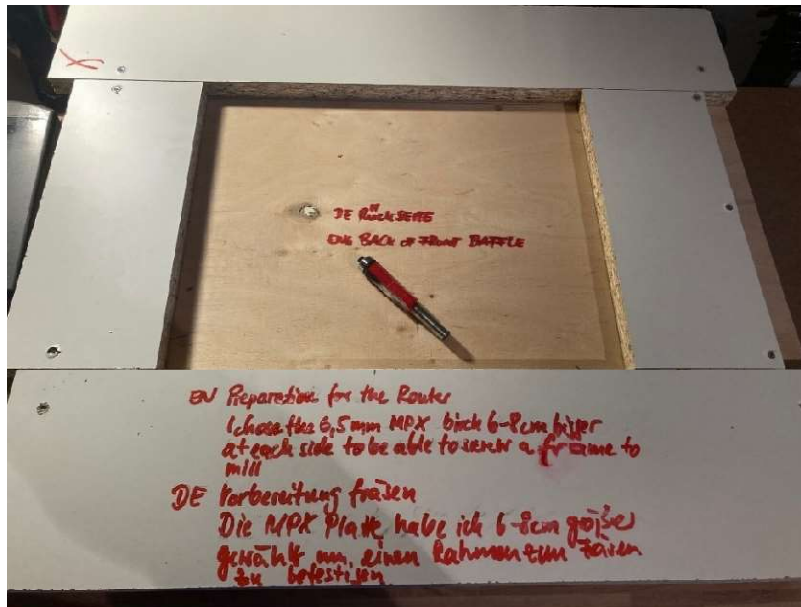 X
DE RÜCKSEITE
ENG BACK OF FRONT BAFFLE
EN Preparation for the Router
I chose the 6,5mm MPX birch 6-8cm bigger
at each side to be able to screw a frame to
mill
DE Vorbereitung fräsen
Die MPX Platte habe ich 6-8cm größer
gewählt um einen Rahmen zum Fräsen
zu befestigen